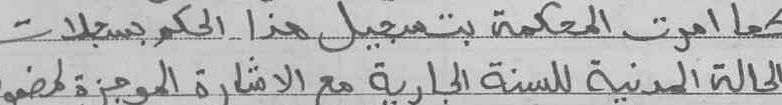 كما امرت المحكمة بتسجيل هذا الحكم بسجلات
الحالة المدنية للسنة الجارية مع الاشارة الموجزة لمضمو